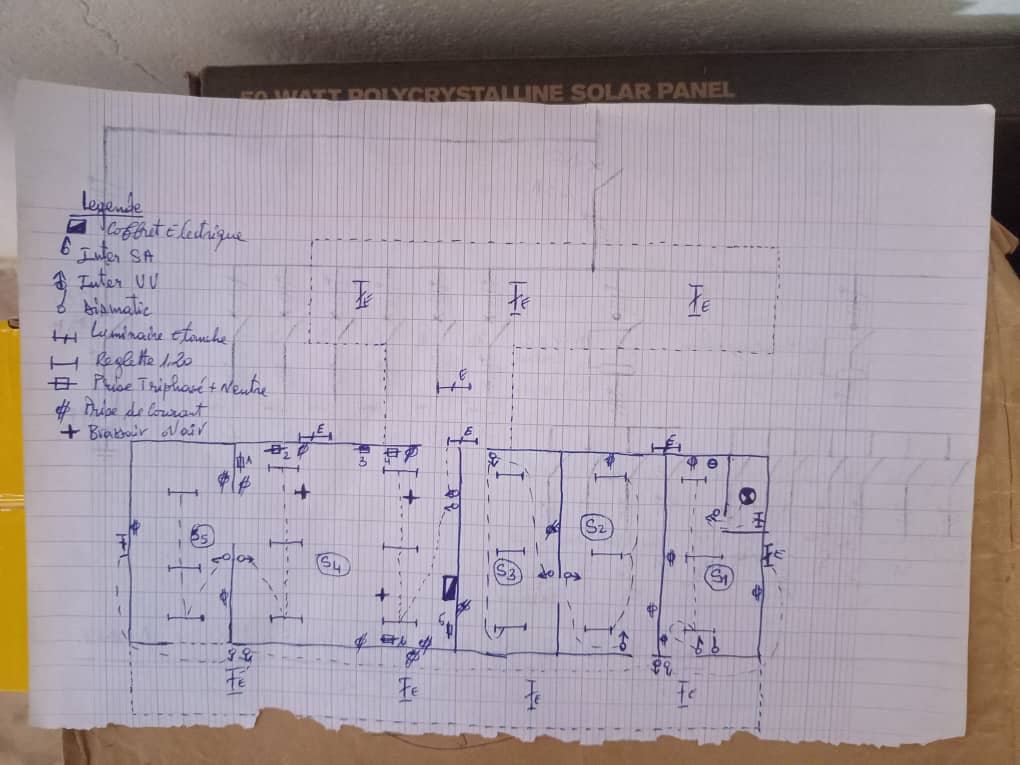 50 WATT POLYCRYSTALLINE SOLAR PANEL
Legende
Coffret Electrique
Inter SA
Inter VV
Dismatic
Luminaire Etanche
Reglette 1.20
Prise Triphasé + Neutre
Prise de Courant
Brassoir d'air
E
E
E
E
E
E
E
1
2
3
4
S5
S4
S3
S2
S1
E
5
6
E
E
E
E